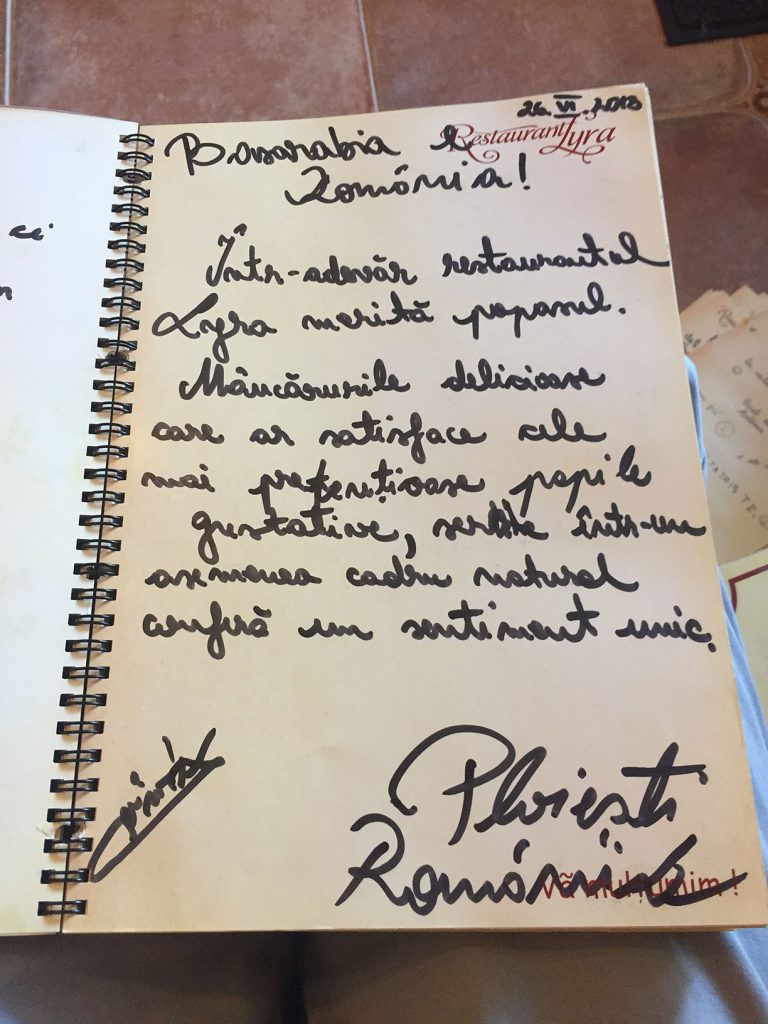 26.VI.2018
Restaurant Lyra
Basarabia e
România!
Într-adevăr restaurantul
Lyra merită popasul.
Mâncărurile delicioase
care ar satisface cele
mai pretențioase papile
gustative, servite într-un
asemenea cadru natural
conferă un sentiment unic.
Ploiești
România
Vă mulțumim!
ci